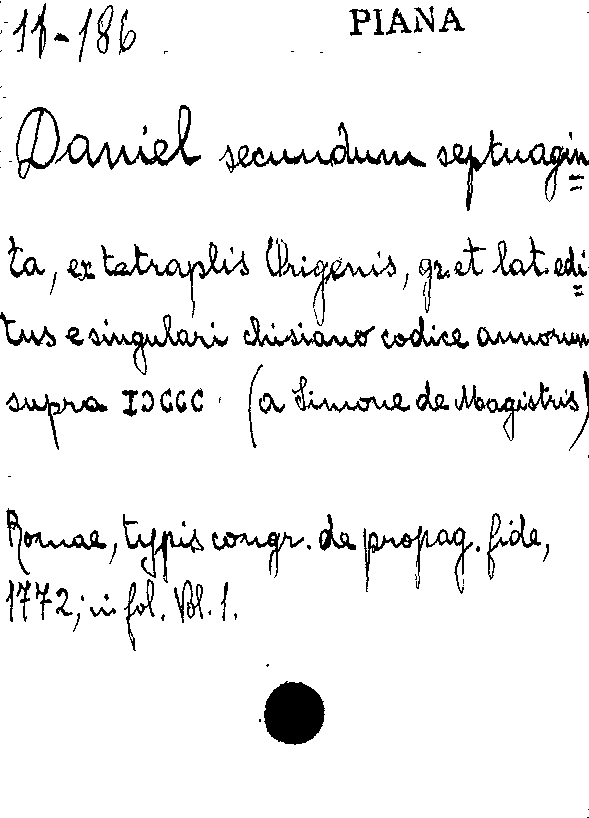 11-186 PIANA
Daniel secundum septuagin
ta, ex tetraplis Origenis, gr. et lat. edi
tus e singulari chisiano codice annorum
supra IƆCCC (a Simone de Magistris)
Romae, typis congr. de propag. fide,
1772; in fol. Vol. 1.